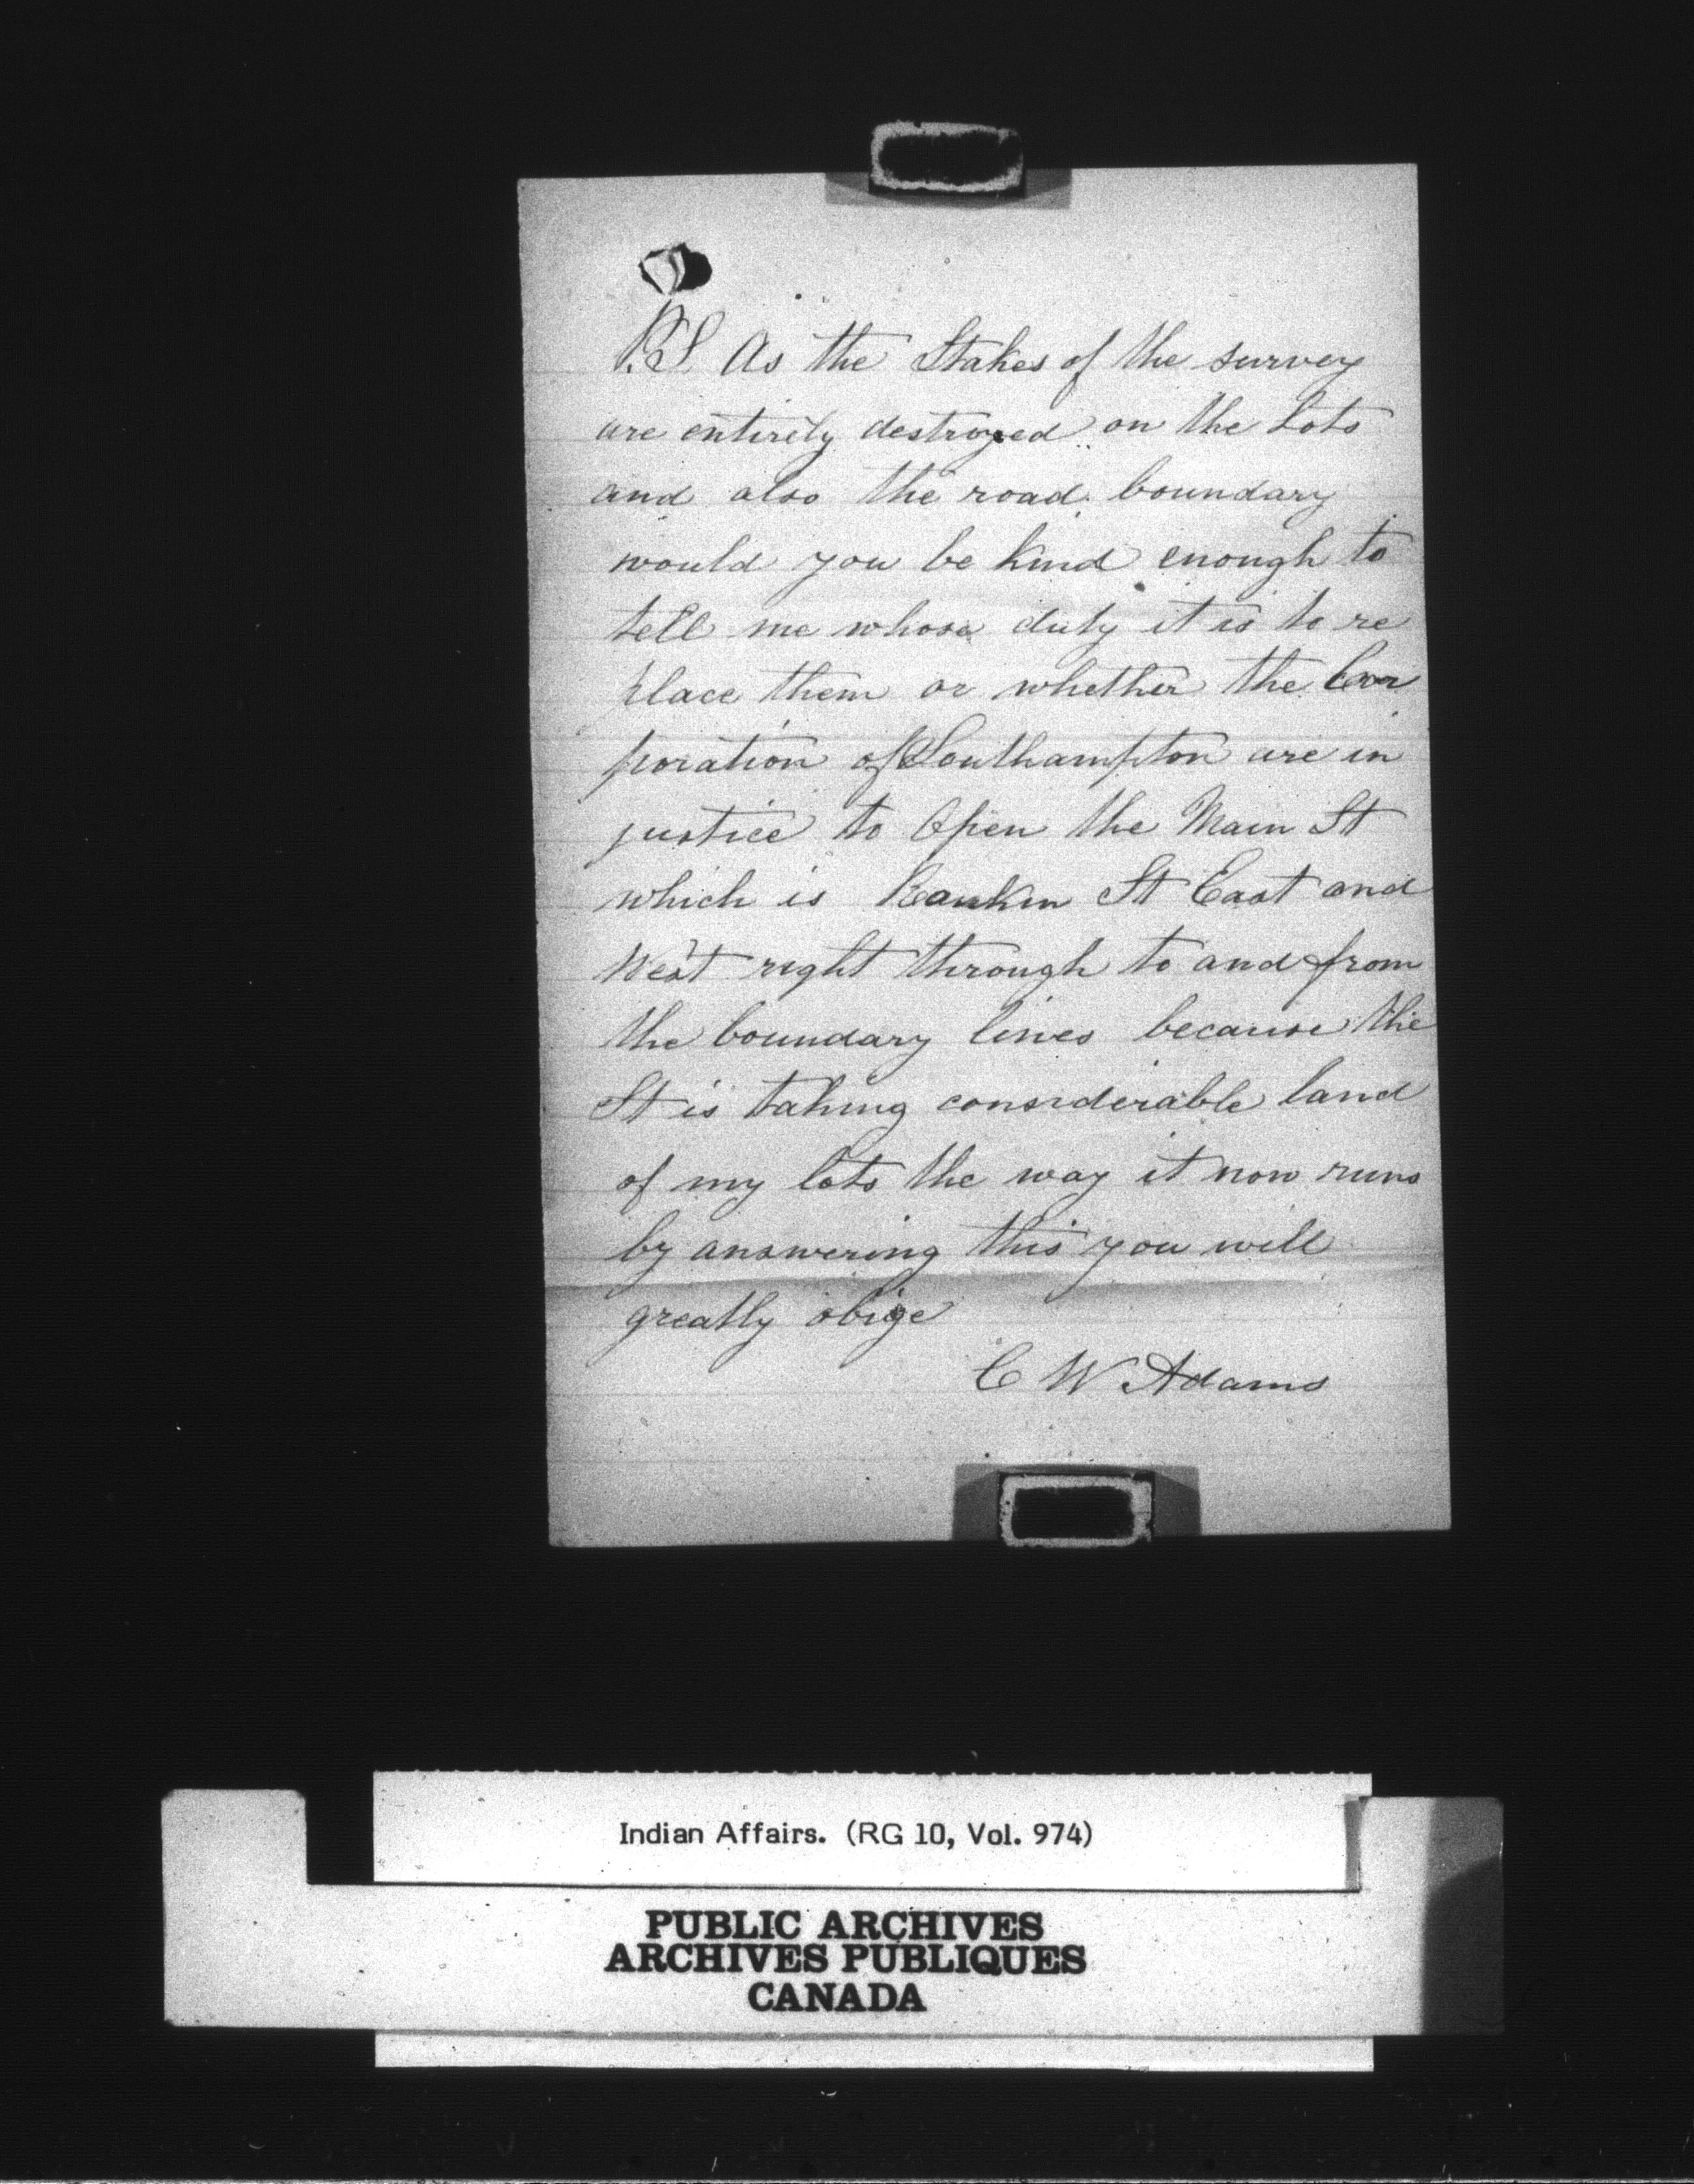 P.S. As the Stakes of the survey
are entirely destroyed on the Lots
and also the road boundary
would you be kind enough to
tell me whose duty it is to re
place them or whether the Cor
poration of Southampton are in
justice to Open the Main St
which is Rankin St East and
West right through to and from
the boundary lines because the
St is taking considerable land
of my lots the way it now runs
by answering this you will
greatly obige
C W Adams
Indian Affairs. (RG 10, Vol. 974)
PUBLIC ARCHIVES
ARCHIVES PUBLIQUES
CANADA